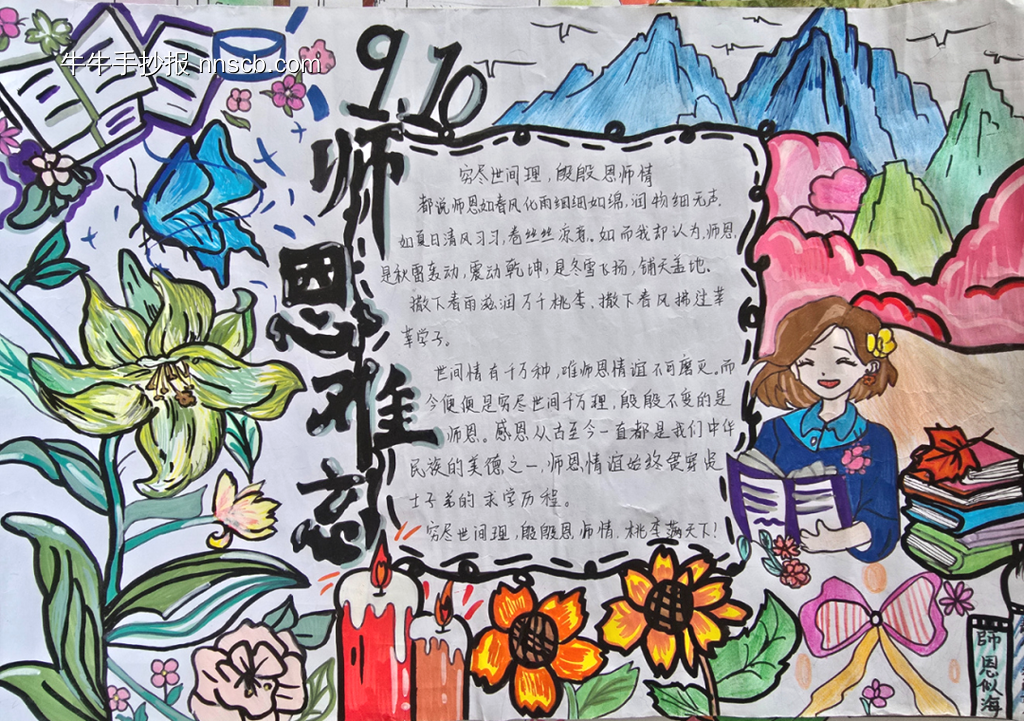 牛牛手抄报 nnscb.com
9.10
师恩难忘
穷尽世间理，殷殷恩师情
都说师恩如春风化雨细细如绵，润物细无声.
如夏日清风习习，卷丝丝凉意. 如而我却认为，师恩.
是秋雷轰动，震动乾坤，是冬雪飞扬，铺天盖地.
撒下春雨滋润万千桃李、撒下春风拂过莘
莘学子。
世间情有千万种，唯师恩情谊不可磨灭。而
今便便是穷尽世间千万理，殷殷不变的是
师恩。感恩从古至今一直都是我们中华
民族的美德之一，师恩情谊始终贯穿
士子弟的求学历程。
穷尽世间理，殷殷恩师情，桃李满天下！
師恩似海